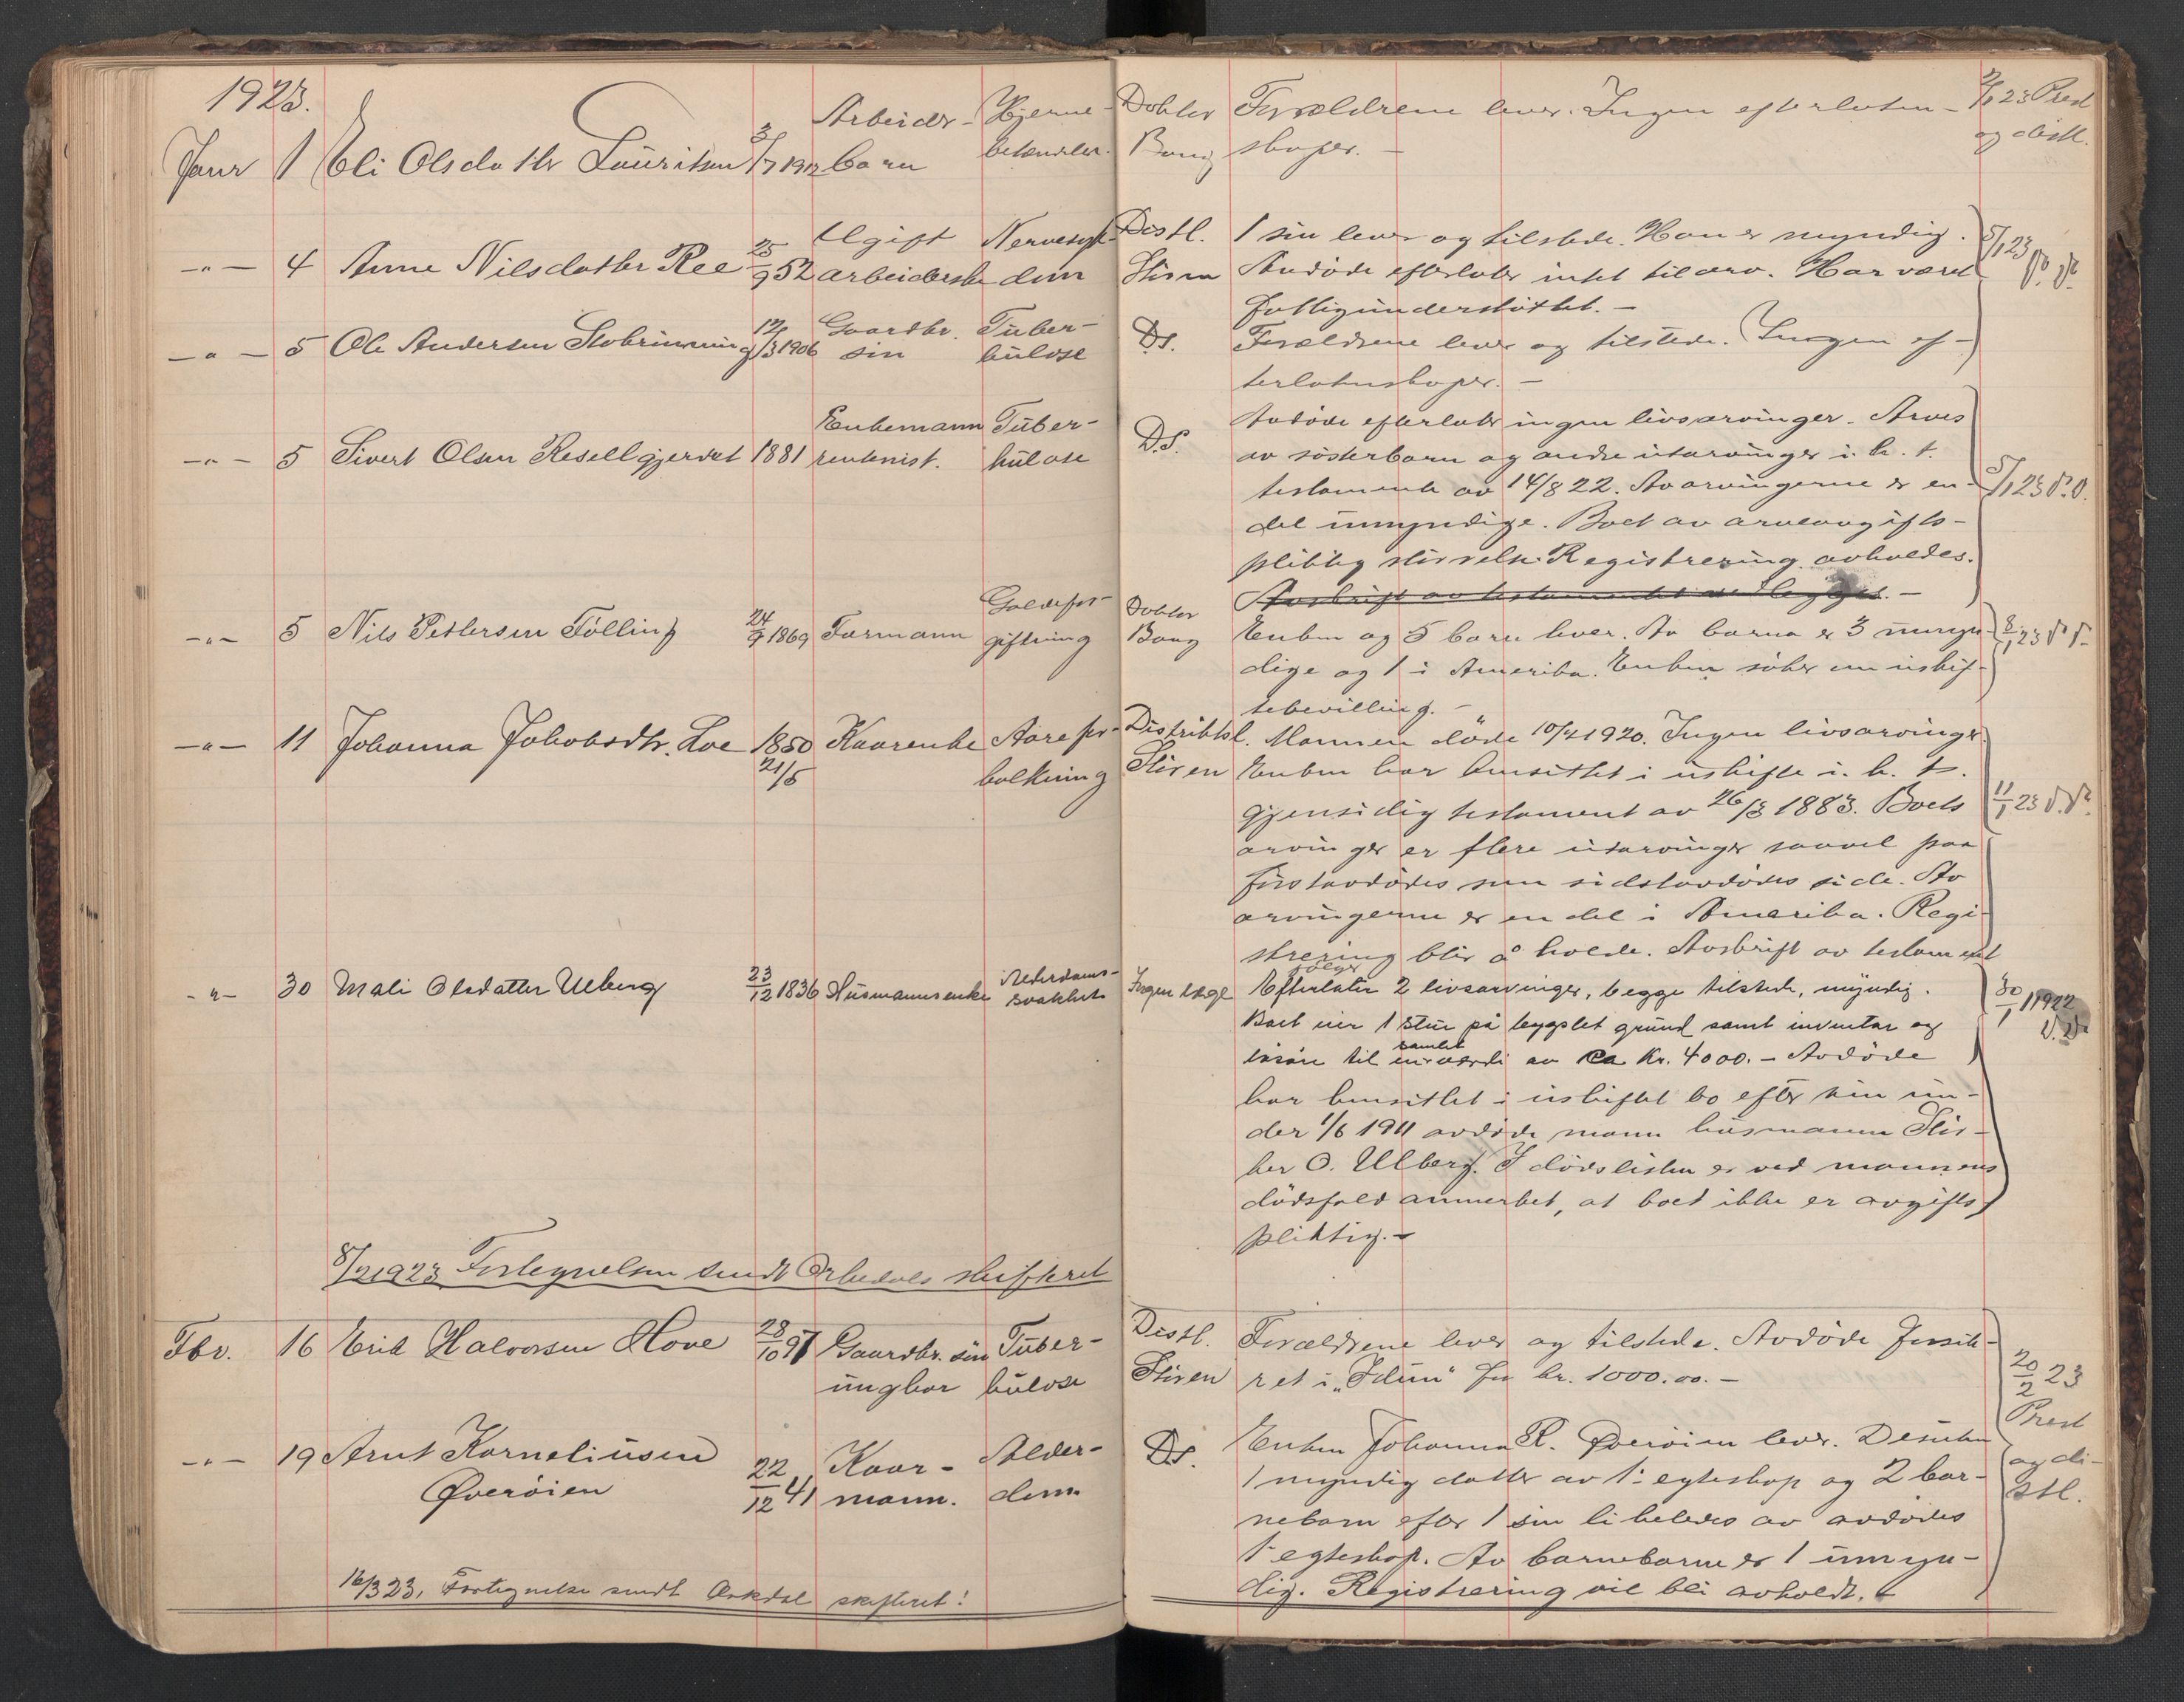 1923.
Janr 1 Eli Olsdatter Lauritsen 3/7 1912 Arbeider-
barn Hjerne-
betændelse. Doktor
Bang Forældrene lever. Ingen efterlaten-
skaper. — 2/1 23 Prest
og distl.
—"— 4 Anne Nilsdatter Ree 25/9 52 Ugift
arbeiderske Nervesyk-
dom Distl.
Stören 1 sön lever og tilstede. Han er myndig.
Avdöde efterlater intet til arv. Har været
fattigunderstöttet. — 5/1 23
—"— 5 Ole Andersen Stobrinning 12/3 1906 Gaardbr.
sön Tuber-
kulose Ds. Forældrene lever og tilstede. Ingen ef-
terlatenskaper. —
—"— 5 Sivert Olsen Resellgjerdet 1881 Enkemann
rentenist. Tuber-
kulose D.S. Avdöde efterlater ingen livsarvinger. Arves
av sösterbarn og andre utarvinger i. h. t.
testamente av 14/8 22. Av arvingerne er en-
del umyndige. Boet av arveavgifts-
pliktig störrelse. Registrering avholdes.
Avskrift av testamentet vedlegges. — 5/1 23 D.D.
—"— 5 Nils Pettersen Fölling 24/9 1869 Formann Galdefor-
giftning Doktor
Bang Enken og 5 barn lever. Av barna er 3 umyn-
dige og 1 i Amerika. Enken söker om uskif-
tebevilling. — 8/1 23
—"— 11 Johanna Jakobsdtr. Loe 1850
21/5 Kaarenke Aarefor-
kalkning Distriktsl.
Stören Mannen döde 10/4 1920. Ingen livsarvinger.
Enken har hensittet i uskifte i. h. t.
gjensidig testament av 26/3 1883. Boets
arvinger er flere utarvinger saavel paa
förstavdödes som sidstavdödes side. Av
arvingerne er en del i Amerika. Regi-
strering blir å holde. Avskrift av testament
følger 11/1 23
—"— 30 Mali Olsdatter Ulberg 23/12 1836 Husmannsenke Alderdoms-
svakhet Ingen læge Efterlater 2 livsarvinger, begge tilstede, myndig.
Boet eier 1 stue på bygslet grund samt inventar og
løsøre til en samlet værdi av ca kr. 4000. — Avdöde
har hensittet i uskiftet bo efter sin un-
der 1/6 1911 avdöde mann husmann Stör-
ker O. Ulberg. I dödslisten er ved mannens
dödsfald anmerket, at boet ikke er avgifts-
pliktig. — 30/1 1922
8/2 1923 Fortegnelsen sendt Orkedals skifteret
Fbr. 16 Erik Halvorsen Hove 28/10 97 Gaardbr. sön
ungkar Tuber-
kulose Distl.
Stören Forældrene lever og tilstede. Avdöde forsik-
ret i „Idun" for kr. 1000.00. — 20/2 23
Prest
og di-
stl.
—"— 19 Arnt Korneliusen
Øverøien 22/12 41 Kaar-
mann. Alder-
dom Ds. Enken Johanna R. Øverøien lever. Desuten
1 myndig datter av 1. egteskap og 2 bar-
nebarn efter 1 sön likeledes av avdödes
1. egteskap. Av barnebarna er 1 umyn-
dig. Registrering vil bli avholdt. —
16/3 23. Fortegnelse sendt Orkdal skifteret!